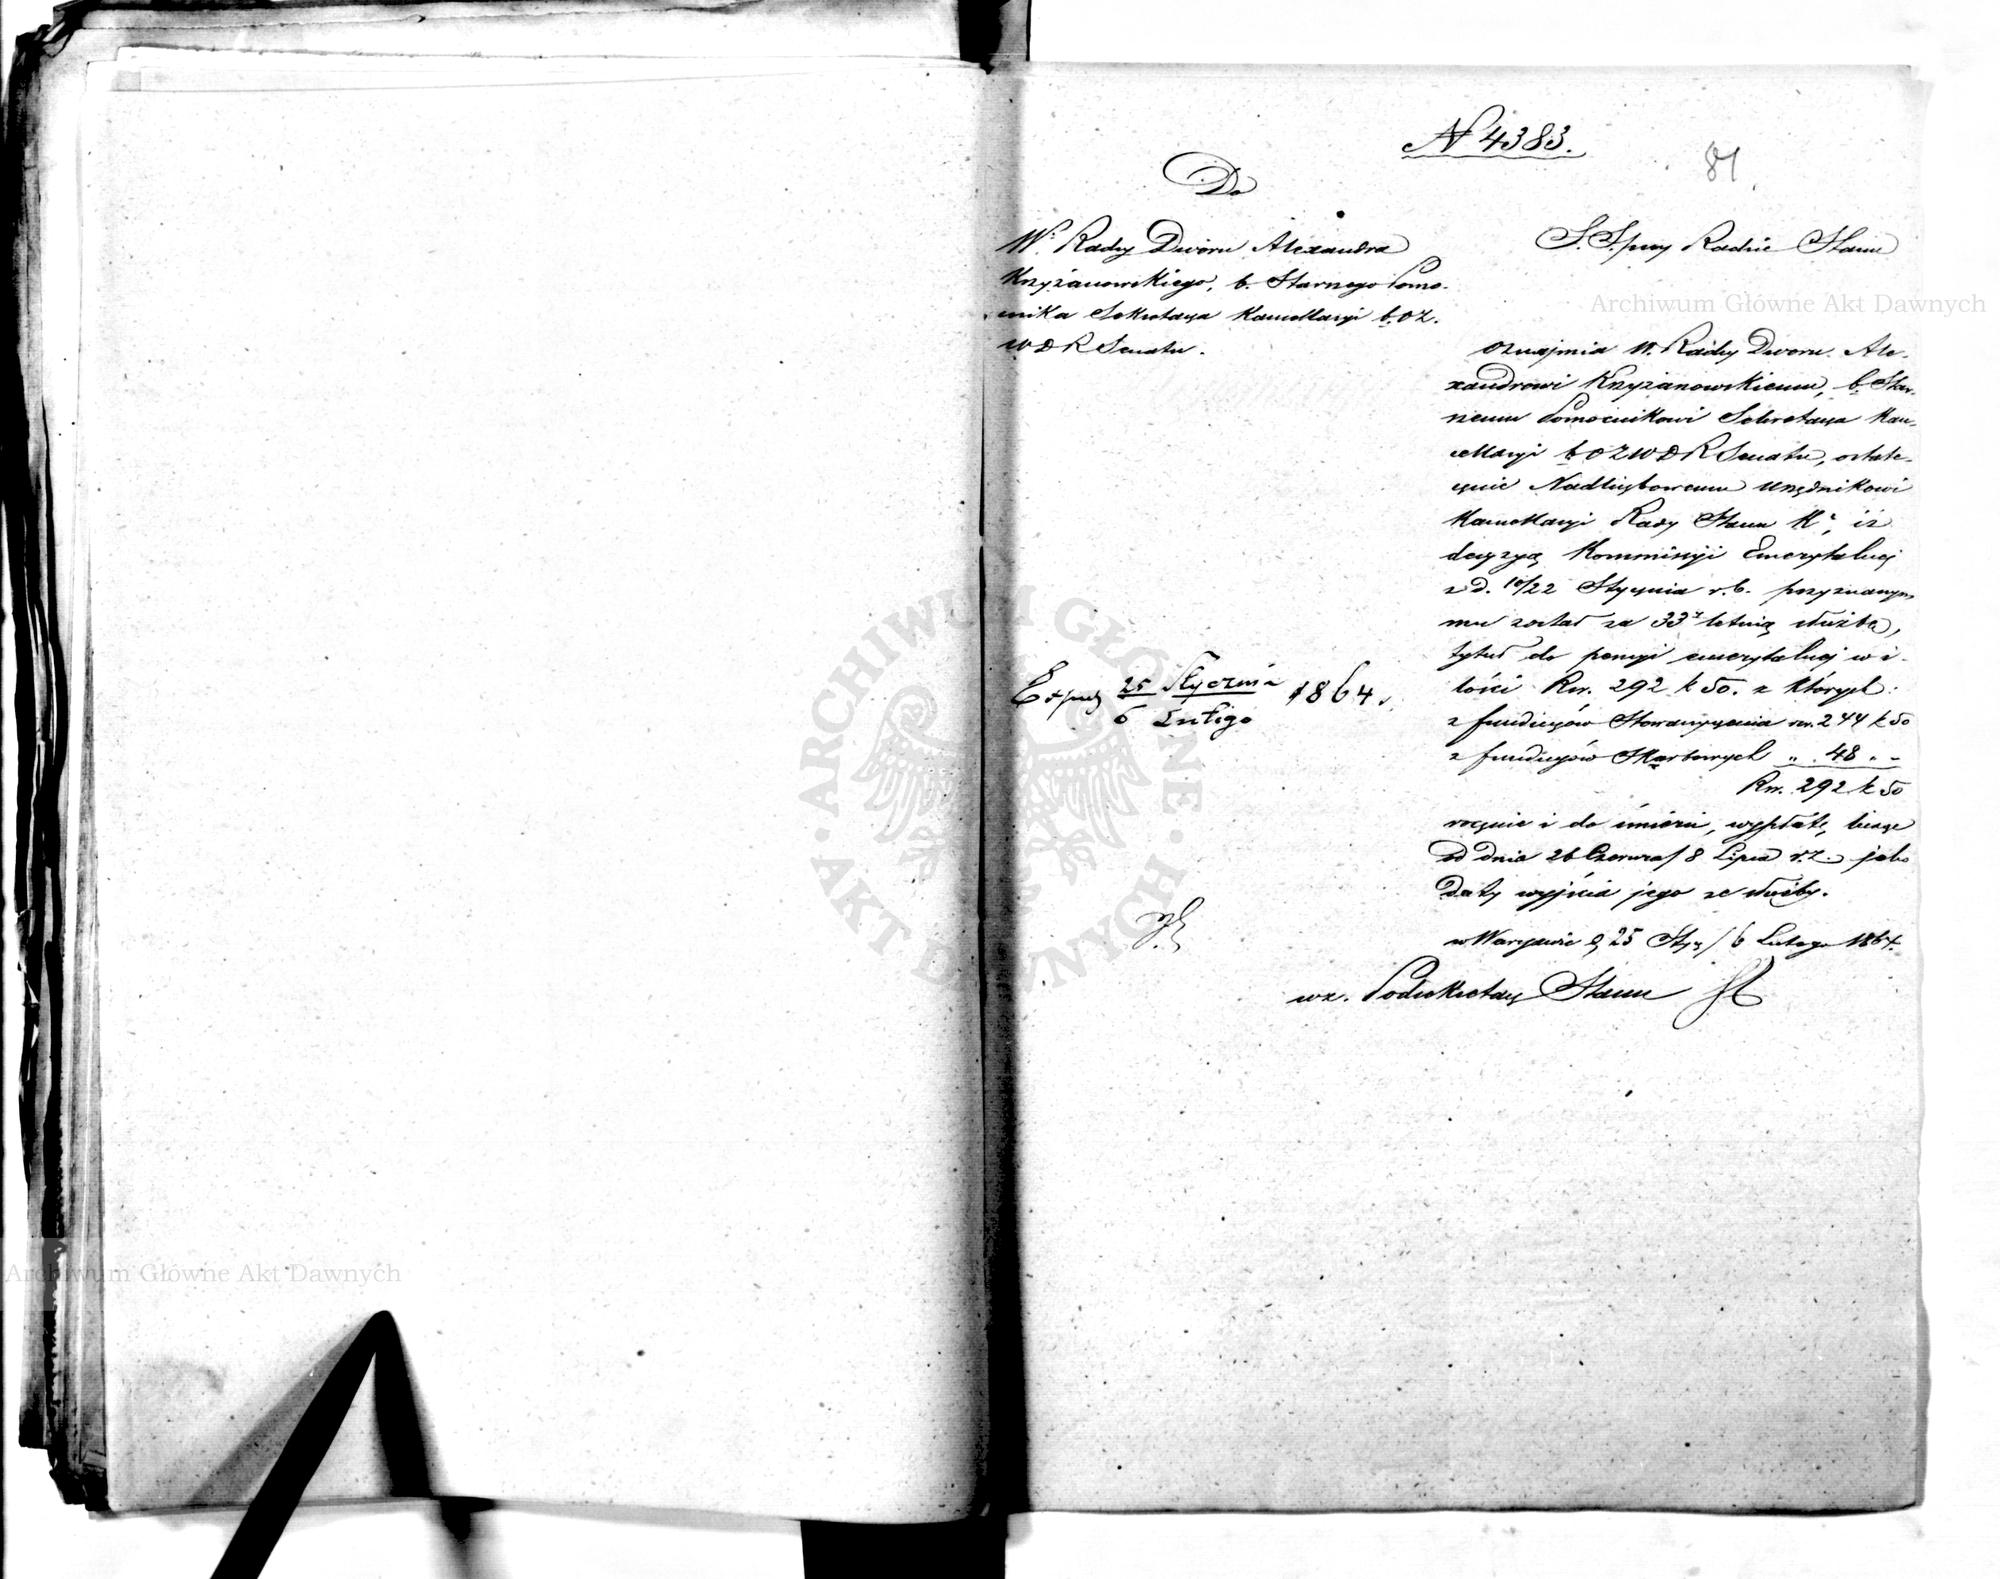 N 4383.
81
Do
W. Radcy Dworu Alexandra
Krzyżanowskiego, b. Starszego Pomo-
cnika Sekretarza Kancellaryi b. OZ.
W D R Senatu.
Exped 25 Stycznia / 6 Lutego 1864.
S. S. przy Radzie Stanu
Oznajmia W. Radcy Dworu Ale-
xandrowi Krzyżanowskiemu, b. Star-
szemu Pomocnikowi Sekretarza Kan-
cellaryi b. O Z W D R Senatu, ostate-
cznie Nadliczbowemu Urzędnikowi
Kancellaryi Rady Stanu K, iż
decyzyą Kommissyi Emerytalnej
z d. 10/22 Stycznia r. b. przyznanym
mu został za 33 letnią służbę,
tytuł do pensyi emerytalnej w i-
lości Rsr. 292 k 50. z których:
z funduszów Stowarzyszenia rsr. 244 k 50
z funduszów Skarbowych " . 48 " -
Rsr. 292 k 50
rocznie i do śmierci, wypłatę, licząc
od dnia 26 Czerwca / 8 Lipca r. z. jako
daty wyjścia jego ze służby.
w Warszawie d 25 Stycz / 6 Lutego 1864.
wz. Podsekretarz Stanu
Archiwum Główne Akt Dawnych
Archiwum Główne Akt Dawnych
ARCHIWUM GŁÓWNE · AKT DAWNYCH ·